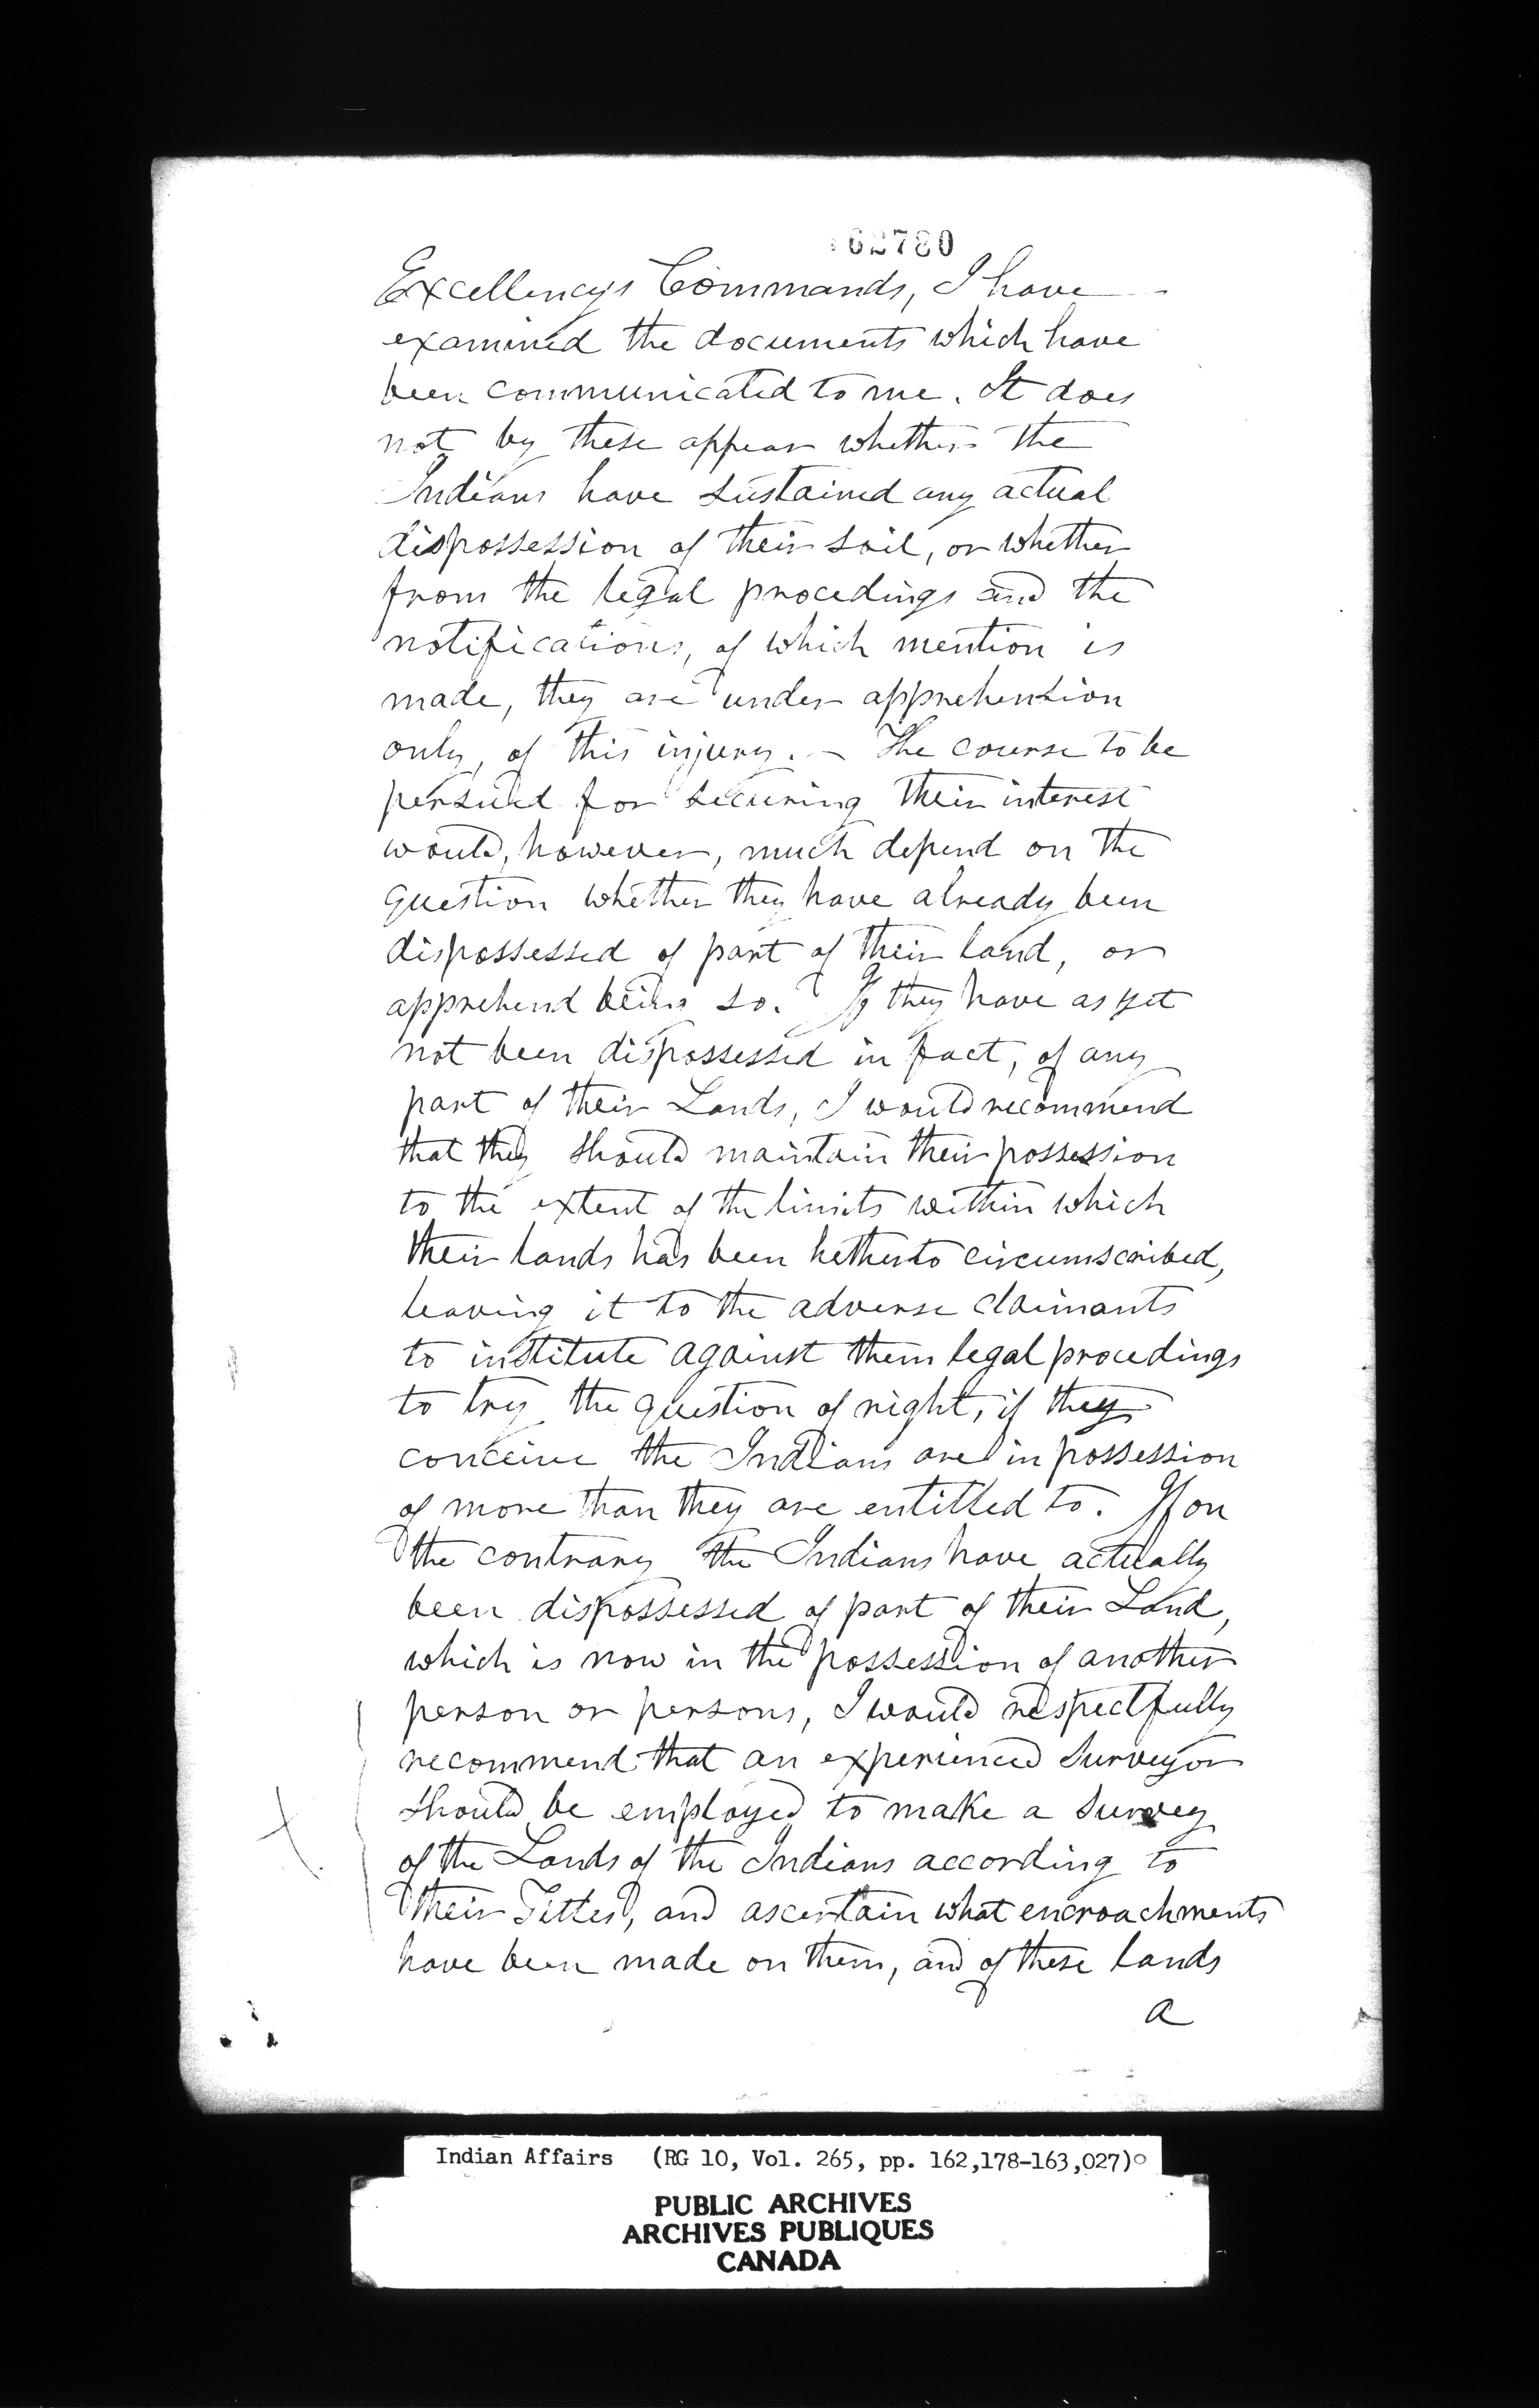 162780
Excellency's Commands, I have
examined the documents which have
been communicated to me. It does
not by these appear whether the
Indians have sustained any actual
dispossession of their soil, or whether
from the legal procedings and the
notifications, of which mention is
made, they are under apprehention
only, of this injury. — The course to be
persued for securing their interest
would, however, much depend on the
question whether they have already been
dispossessed of part of their land, or
apprehend being so. If they have as yet
not been dispossessed in fact, of any
part of their Lands, I would recommend
that they should maintain their possession
to the extent of the limits within which
their lands has been hetherto circumscribed,
leaving it to the adverse claimants
to institute against them legal procedings
to try the question of right, if they
conceive the Indians are in possession
of more than they are entitled to. If on
the contrary the Indians have actually
been dispossessed of part of their Land,
which is now in the possession of another
person or persons, I would respectfully
recommend that an experienced Surveyor
should be employed to make a Survey
of the Lands of the Indians according to
their Titles, and ascertain what encroachments
have been made on them, and of these lands
a
Indian Affairs (RG 10, Vol. 265, pp. 162,178-163,027)
PUBLIC ARCHIVES
ARCHIVES PUBLIQUES
CANADA